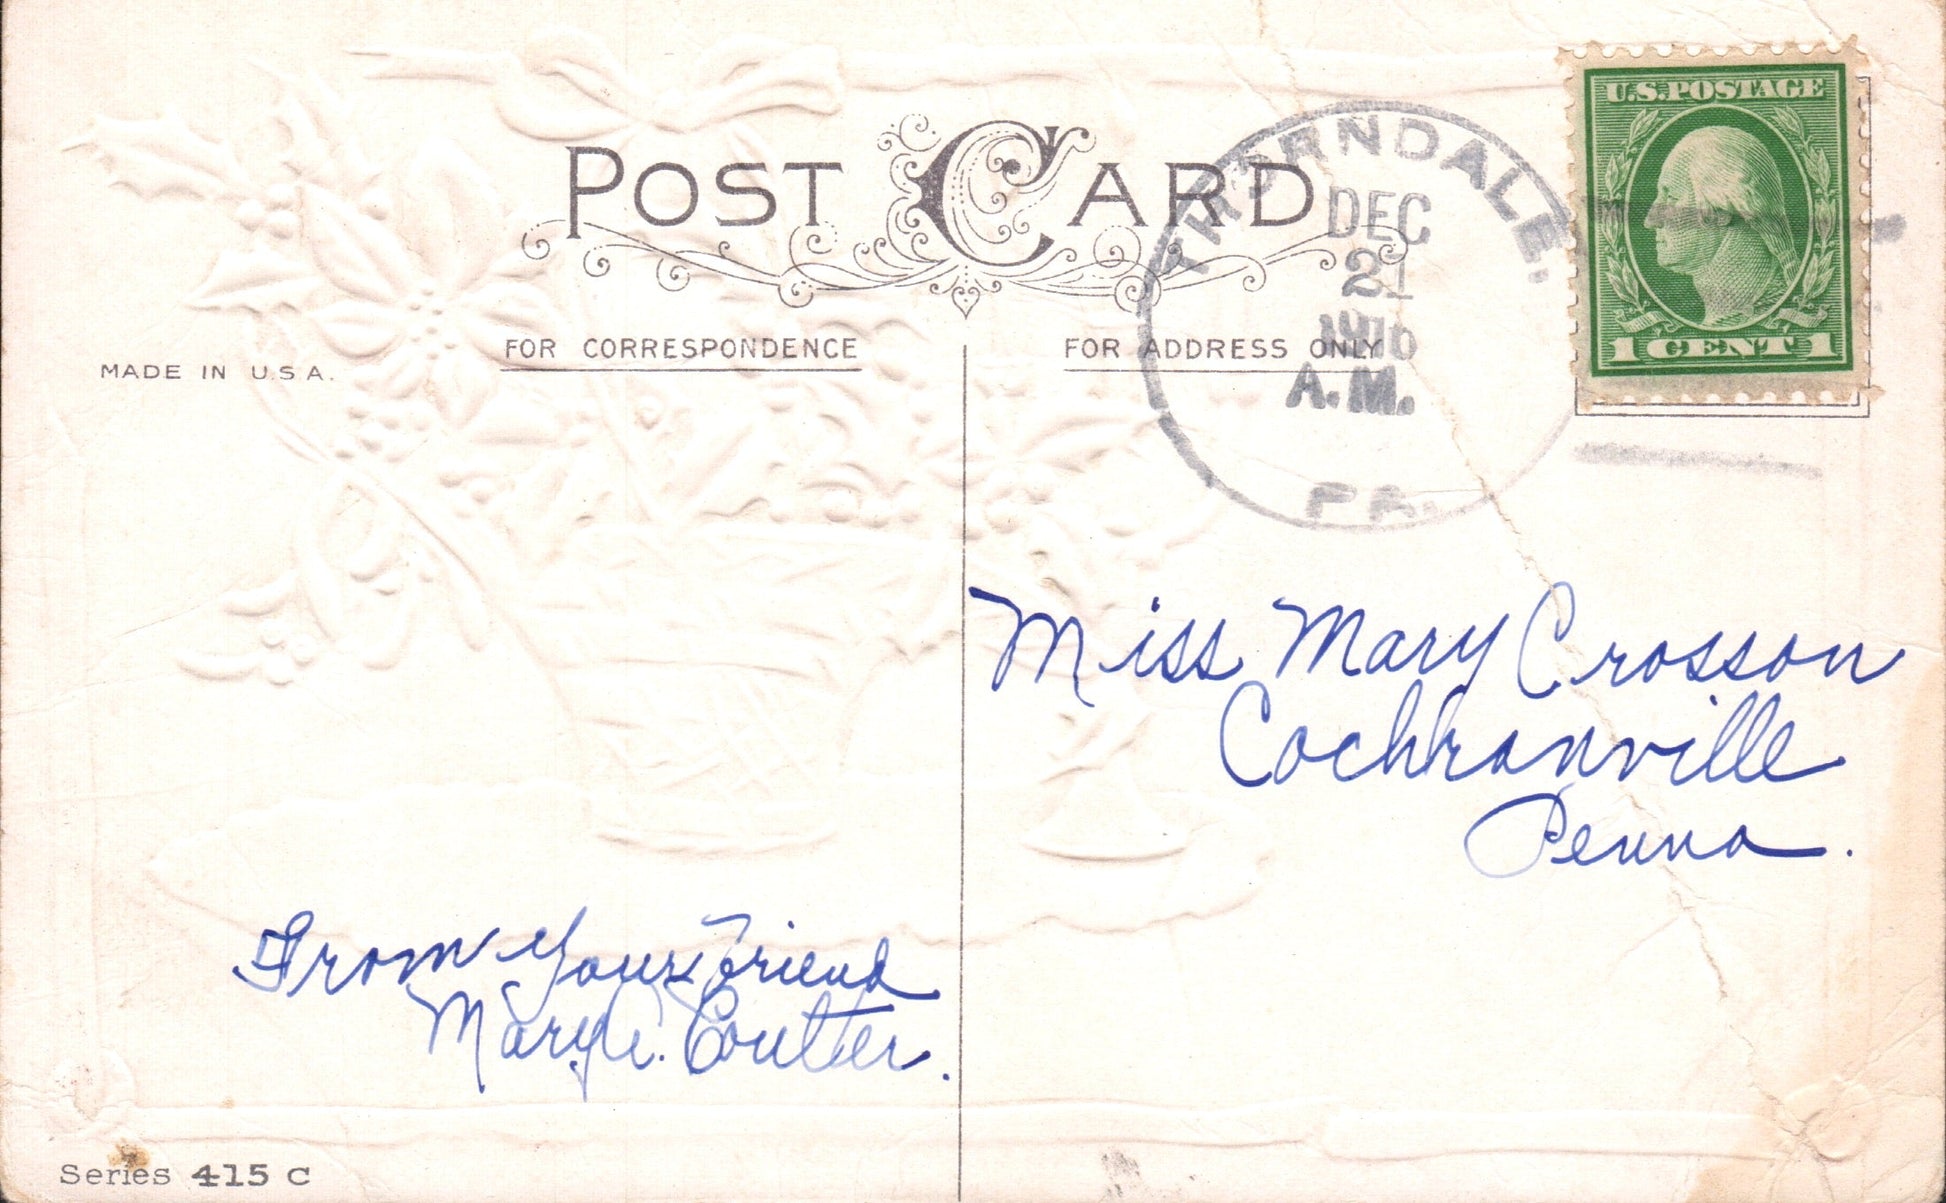 POST CARD
THORNDALE.
DEC
21
A.M.
PA.
U.S.POSTAGE
1 CENT 1
FOR CORRESPONDENCE
FOR ADDRESS ONLY
MADE IN U.S.A.
Miss Mary Crosson
Cochranville
Penna.
From Your Friend
Mary C. Coulter.
Series 415 C